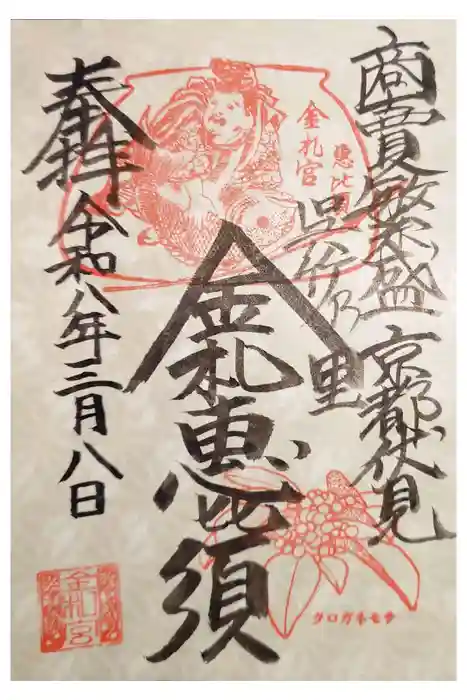 商賣繁盛 京都伏見
呉竹乃里
金札宮
恵比
金札恵比須
奉拝
令和八年三月八日
金札宮
クロガネモチ